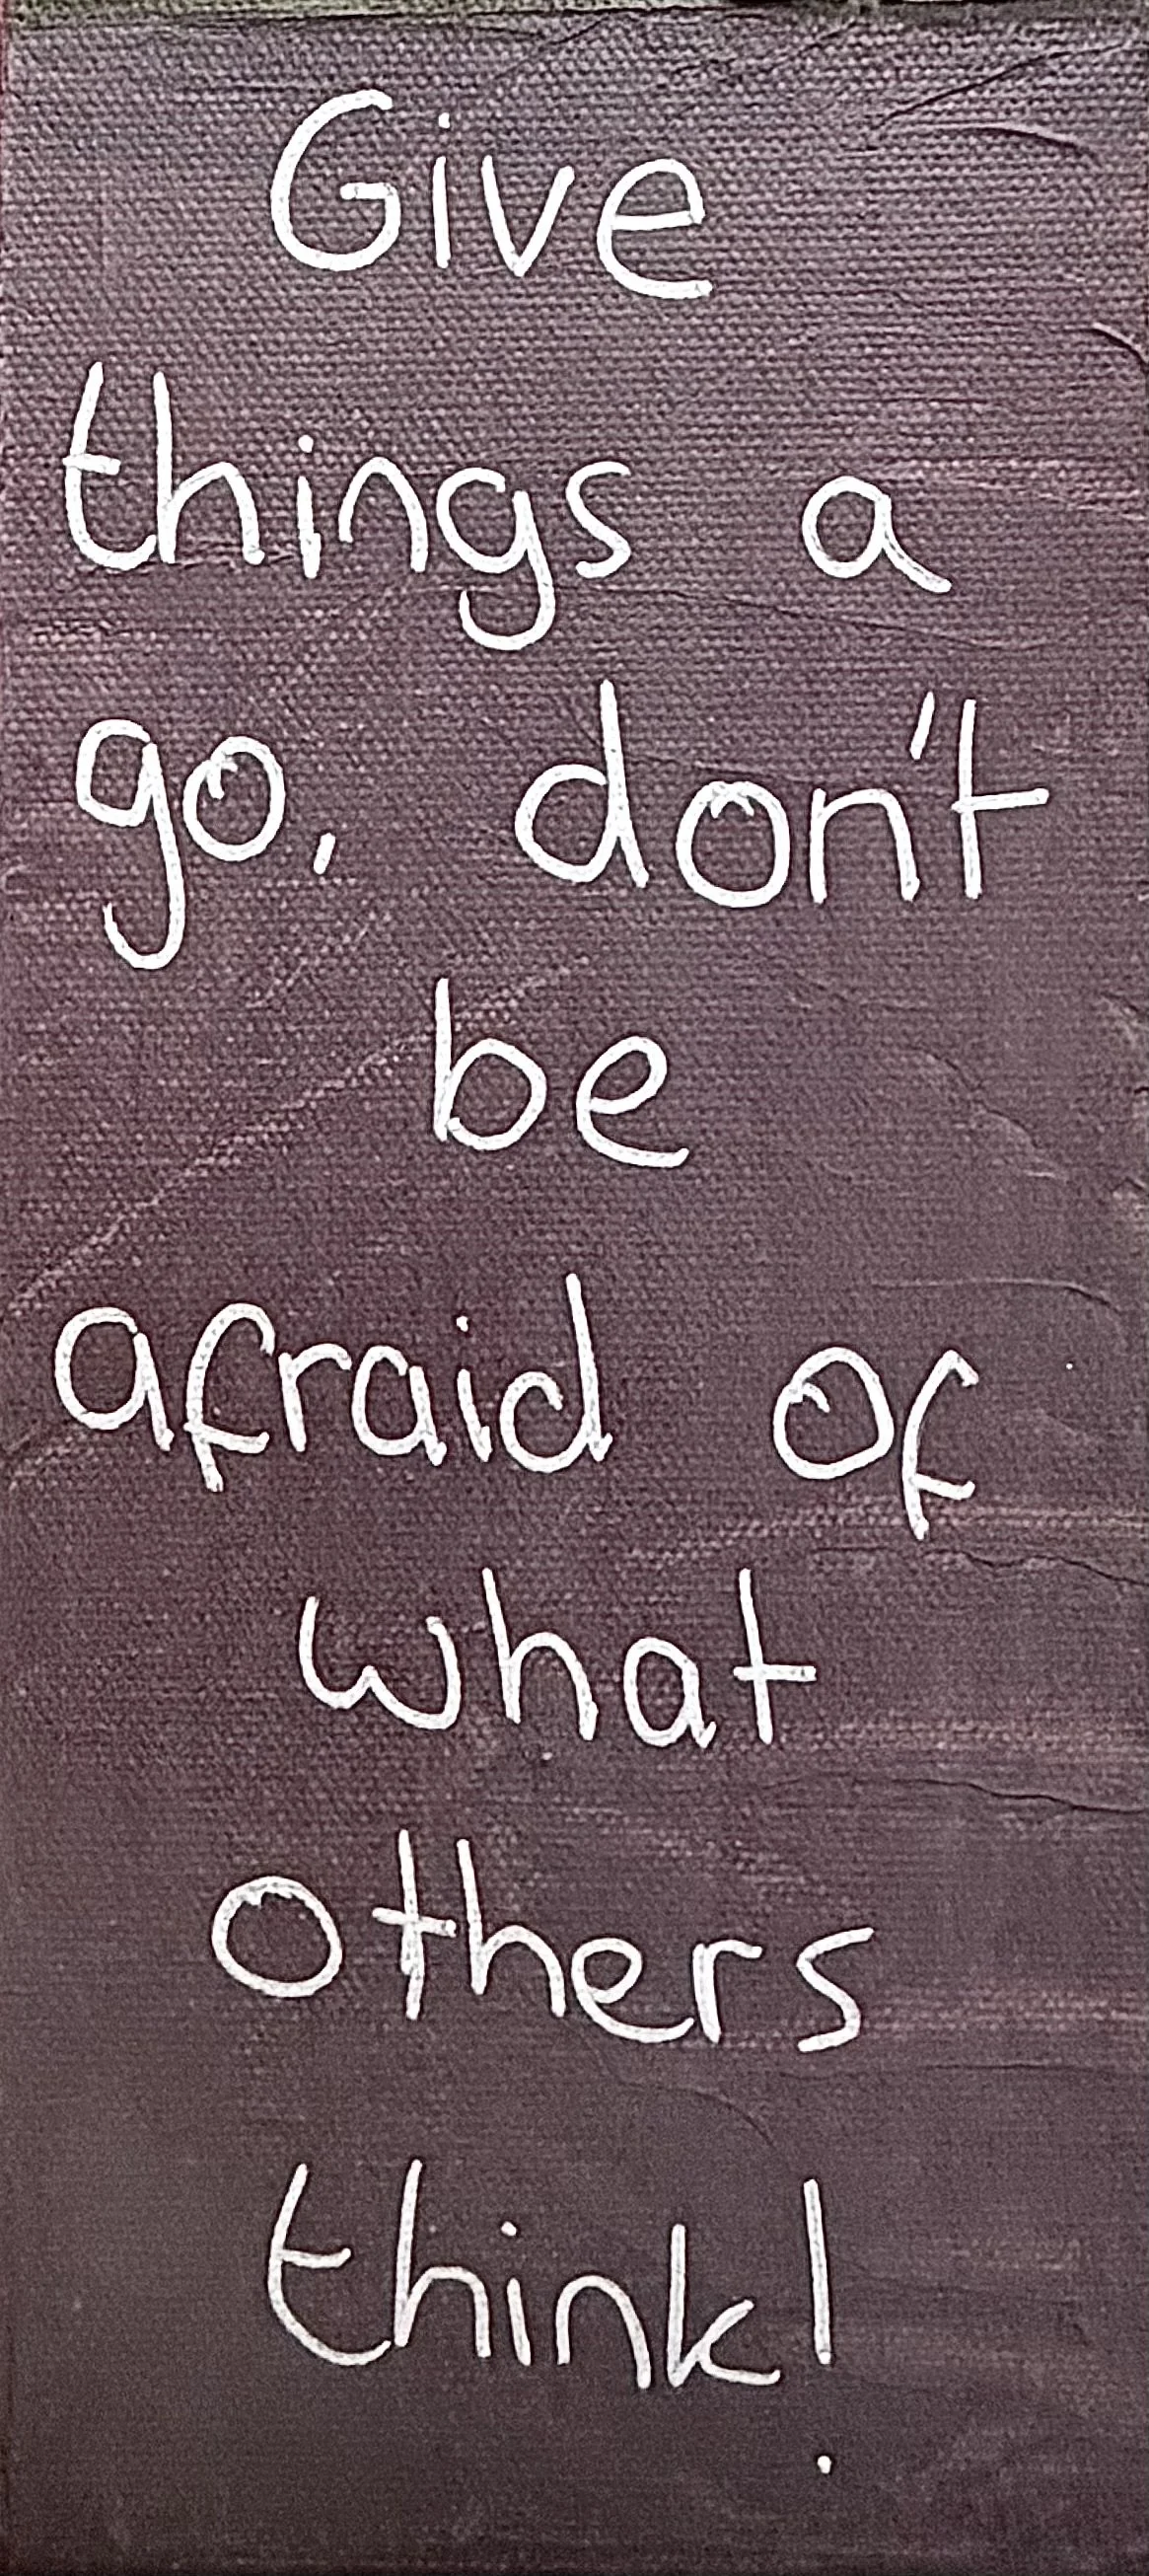 Give
things a
go, don't
be
afraid of
what
others
think!